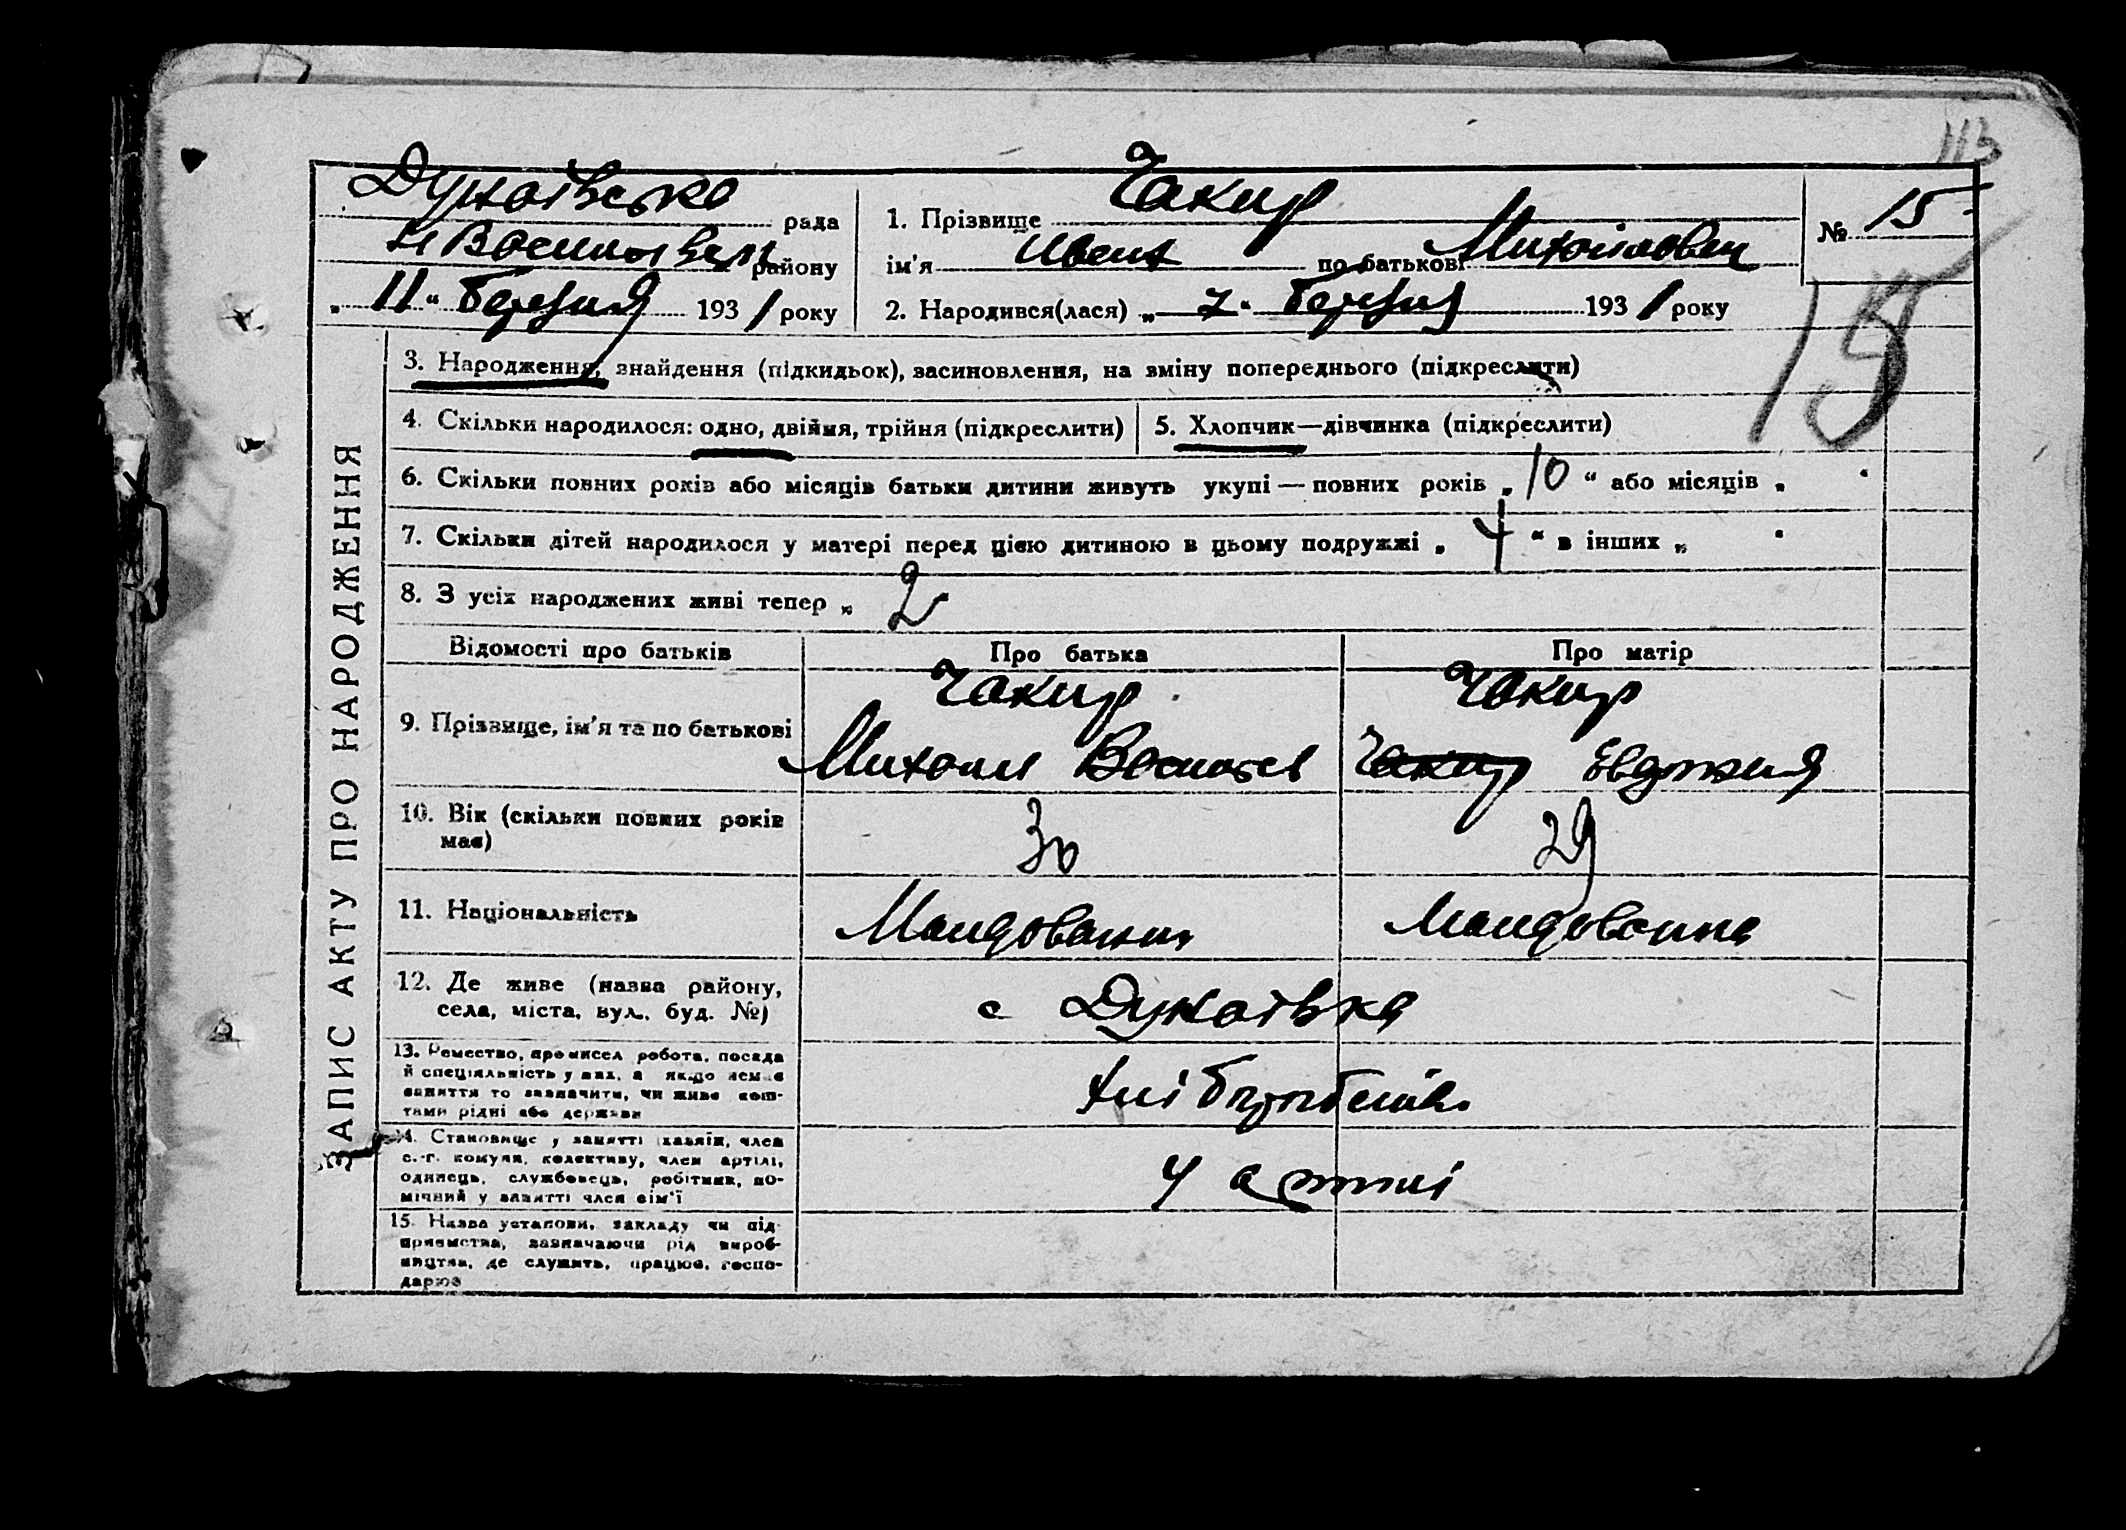 113
Дунаївська рада
Н Василівськ району
„ 11 " березня 1931 року
1. Прізвище Чакир
ім'я Иван по батькові Михайлович
2. Народився(лася) „ 7 " березня 1931 року
№ 15
15
ЗАПИС АКТУ ПРО НАРОДЖЕННЯ
3. Народження, знайдення (підкидьок), засиновлення, на зміну попереднього (підкреслити)
4. Скільки народилося: одно, двійня, трійня (підкреслити)
5. Хлопчик—дівчинка (підкреслити)
6. Скільки повних років або місяців батьки дитини живуть укупі — повних років „ 10 " або місяців „ "
7. Скільки дітей народилося у матері перед цією дитиною в цьому подружжі „ 4 " в інших „ "
8. З усіх народжених живі тепер „ 2
Відомості про батьків
Про батька
Про матір
9. Прізвище, ім'я та по батькові
Чакир
Михаил Васильев
Чакир
Чакир Евдокия
10. Вік (скільки повних років
має)
30
29
11. Національність
Молдованин
Молдованка
12. Де живе (назва району,
села, міста, вул., буд. №)
с Дунаївка
13. Ремество, промисел робота, посада
й спеціяльність у них, а якщо немає
заняття то зазначити, чи живе кош-
тами рідні або держави
хліборобство
14. Становище у занятті (хазяїн, член
с.-г. комуни, колективу, член артілі,
одинець, службовець, робітник, по-
мічний у занятті член сім'ї
У артілі
15. Назва установи, закладу чи під-
приємства, зазначаючи рід вироб-
ництва, де служить, працює, госпо-
дарює